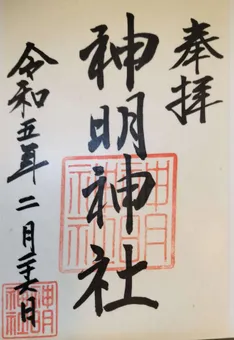 奉拝
神明神社
令和五年二月二十六日
神明
神社